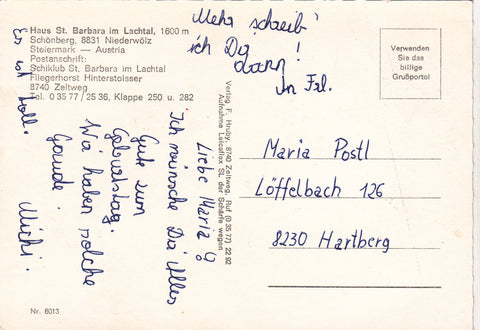 Haus St. Barbara im Lachtal, 1600 m
Schönberg, 8831 Niederwölz
Steiermark — Austria
Postanschrift:
Schiklub St. Barbara im Lachtal
Fliegerhorst Hinterstoisser
8740 Zeltweg
Tel. 0 35 77 / 25 36, Klappe 250 u. 282
Verlag F. Hruby, 8740 Zeltweg, Ruf (0 35 77) 22 92
Aufnahme Leicaflex SL der Schärfe wegen
Liebe Maria
Ich wünsche Dir Alles
Gute zum
Geburtstag.
Wir haben solche
Gaude.
Michi.
Es ist toll.
Mehr schreib'
ich Dir
dann!
Verwenden
Sie das
billige
Grußportal
Maria Postl
Löffelbach 126
8230 Hartberg
Nr. 6013